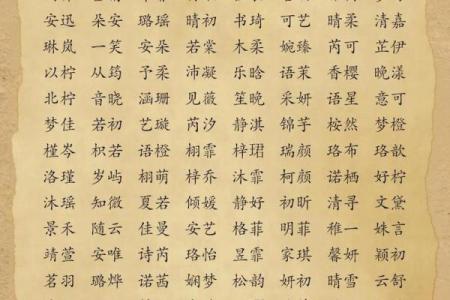 安迅 朵安 璐瑶 晴初 书琦 可艺 晴柔 清嘉
琳岚 一笑 安朵 若棠 木柔 婉臻 芮可 芷伊
以柠 从筠 予柔 沛凝 乐晗 语茉 香樱 晚漾
北柠 音晓 涵珊 见薇 笙晚 采妍 语星 意可
梦佳 若初 艺璇 芮汐 静淇 锦芋 桉然 梦橙
槿岑 枳若 语橙 栩霏 梓珺 瑞颜 珞布 珞歆
洛瑾 岁屿 栩萌 梓乔 沐霏 柯颜 诺栖 好柠
沐瑶 知微 夏若 倾媛 静好 初昕 清寻 文黛
景禾 随云 佳曼 安艺 格菲 明菲 稚一 姝言
靖萱 安唯 诗芮 珞怡 昱霏 家琪 馨妍 颖初
茗羽 璐烨 诺茜 娴梦 松韵 妍初 晴雪 云舒